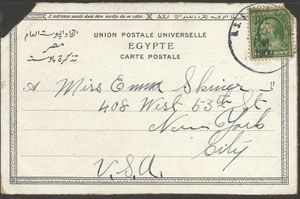 L'adresse seule doit être mise de ce côté.
UNION POSTALE UNIVERSELLE
اتحاد البوستة العام
EGYPTE
مصر
CARTE POSTALE
تذكرة بوستة
A Miss Emma Skinner
408 West 53rd St
New York
City
U.S.A